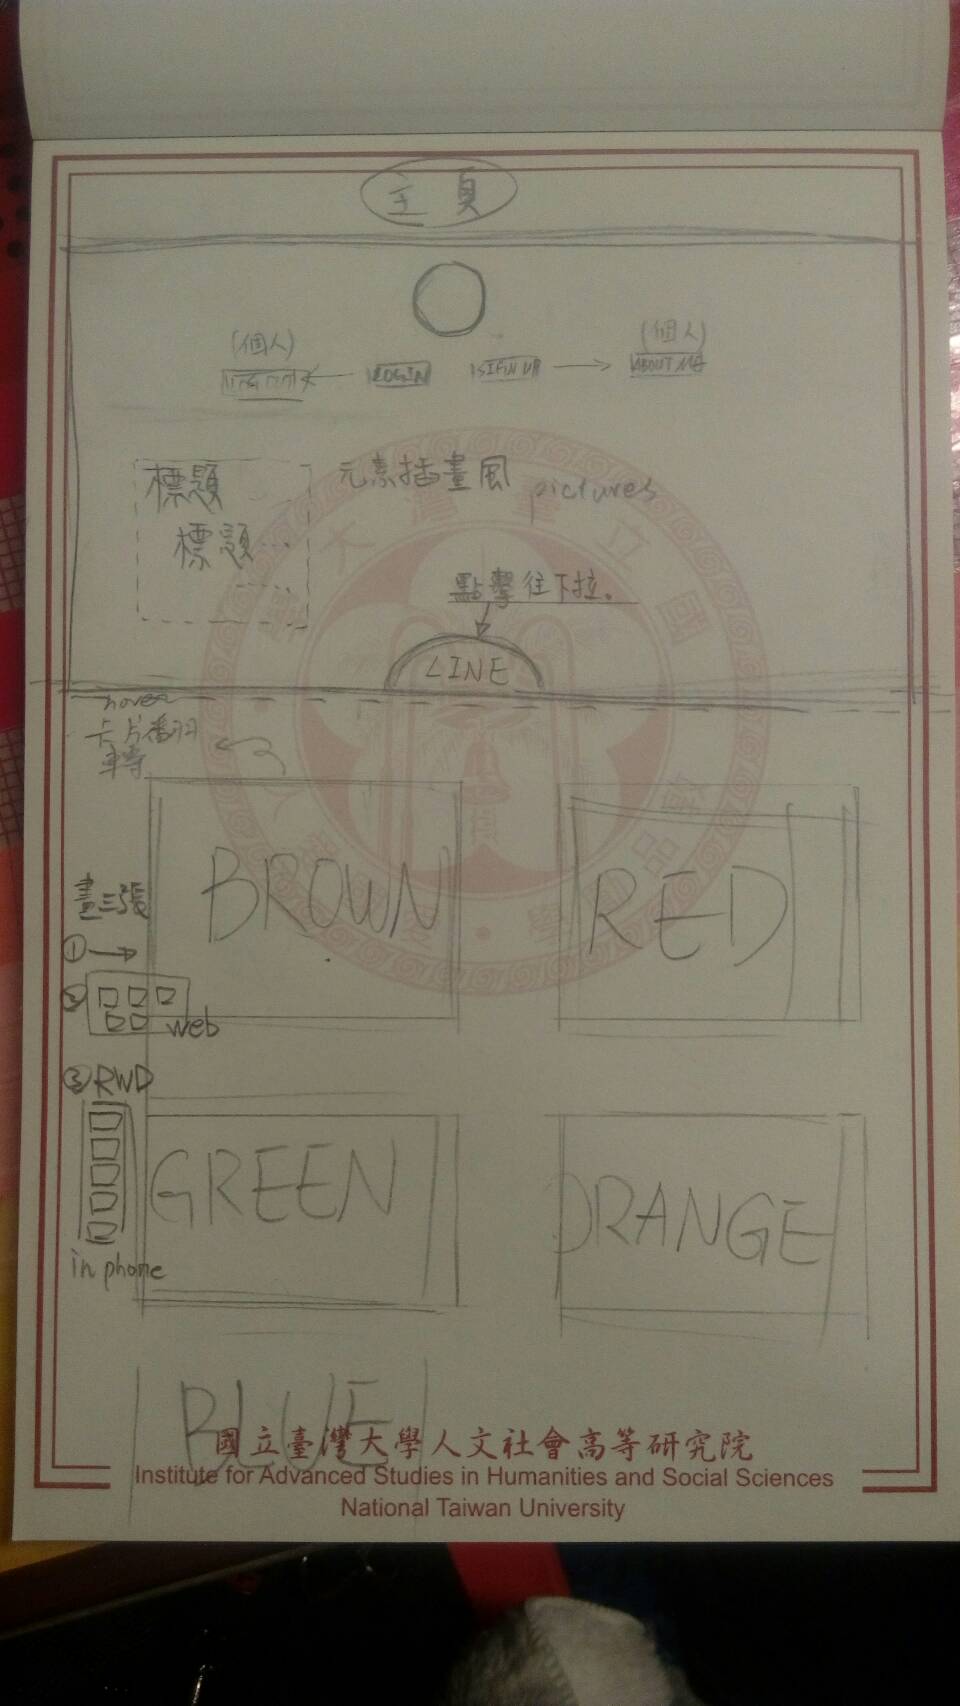 主頁
(個人)
(個人)
LOGIN
SIFIN UP
ABOUT ME
標題
標題...
元素插畫風 pictures
點擊往下拉。
LINE
hover
卡片翻轉
BROWN
RED
畫三張
①
②
web
③ RWD
in phone
GREEN
ORANGE
BLUE
國立臺灣大學人文社會高等研究院
Institute for Advanced Studies in Humanities and Social Sciences
National Taiwan University